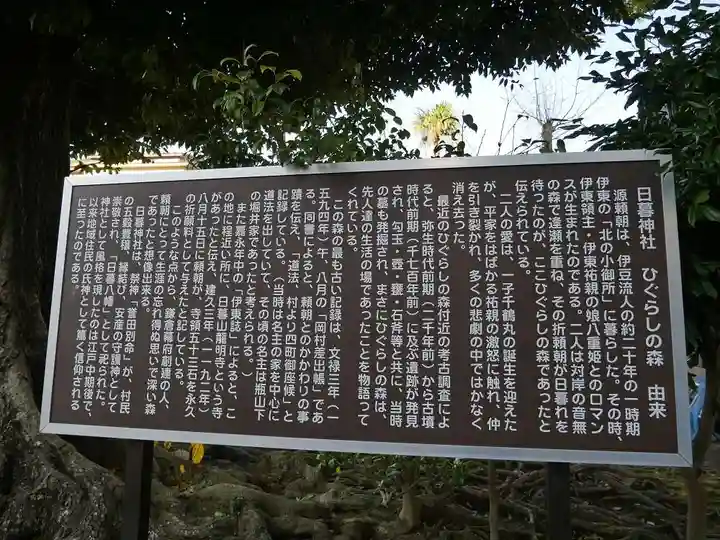 日暮神社　ひぐらしの森　由来
源頼朝は、伊豆流人の約二十年の一時期
伊東の「北の小御所」に暮らした。その時、
伊東領主・伊東祐親の娘八重姫とのロマン
スが生まれたのである。二人は対岸の音無
の森で逢瀬を重ね、その折頼朝が日暮れを
待ったのが、ここひぐらしの森であったと
伝えられている。
二人の愛は、一子千鶴丸の誕生を迎えた
が、平家をはばかる祐親の激怒に触れ、仲
を引き裂かれ、多くの悲劇の中ではかなく
消え去った。
最近のひぐらしの森付近の考古調査によ
ると、弥生時代前期（二千年前）から古墳
時代前期（千七百年前）に及ぶ遺跡が発見
され、勾玉・壺・甕・石斧等と共に、当時
の墓も発掘され、まさにひぐらしの森は、
先人達の生活の場であったことを物語って
くれている。
この森の最も古い記録は、文禄三年（一
五九四年）午、八月の「岡村差出帳」であ
る。同書によると、頼朝とのかかわりの事
蹟を伝え、「道法、村より四町御座候」と
記録している。（当時は名主の家を中心に
道法を出していて、その頃の名主は瓶山下
の堀井家であったと考えられる。）
また嘉永年中の「伊東誌」によると、こ
の地に程近い所に、日暮山龍明寺という寺
があったと伝え、建久三年（一一九二年）
八月十五日に頼朝が、寺領五十三石を永久
の祈願料として与えたと記している。
このような点から、鎌倉幕府創建の人、
頼朝にとって生涯の忘れ得ぬ思いで深い森
であったと想像出来る。
日暮神社は、祭神「誉田別命」が、村民
の五穀豊穣、縁結び、安産の守護神として
崇敬され、「日暮八幡」として祀られた。
神社として風格を現したのは江戸中期後で、
以来地域住民の氏神として篤く信仰される
に至ったのである。